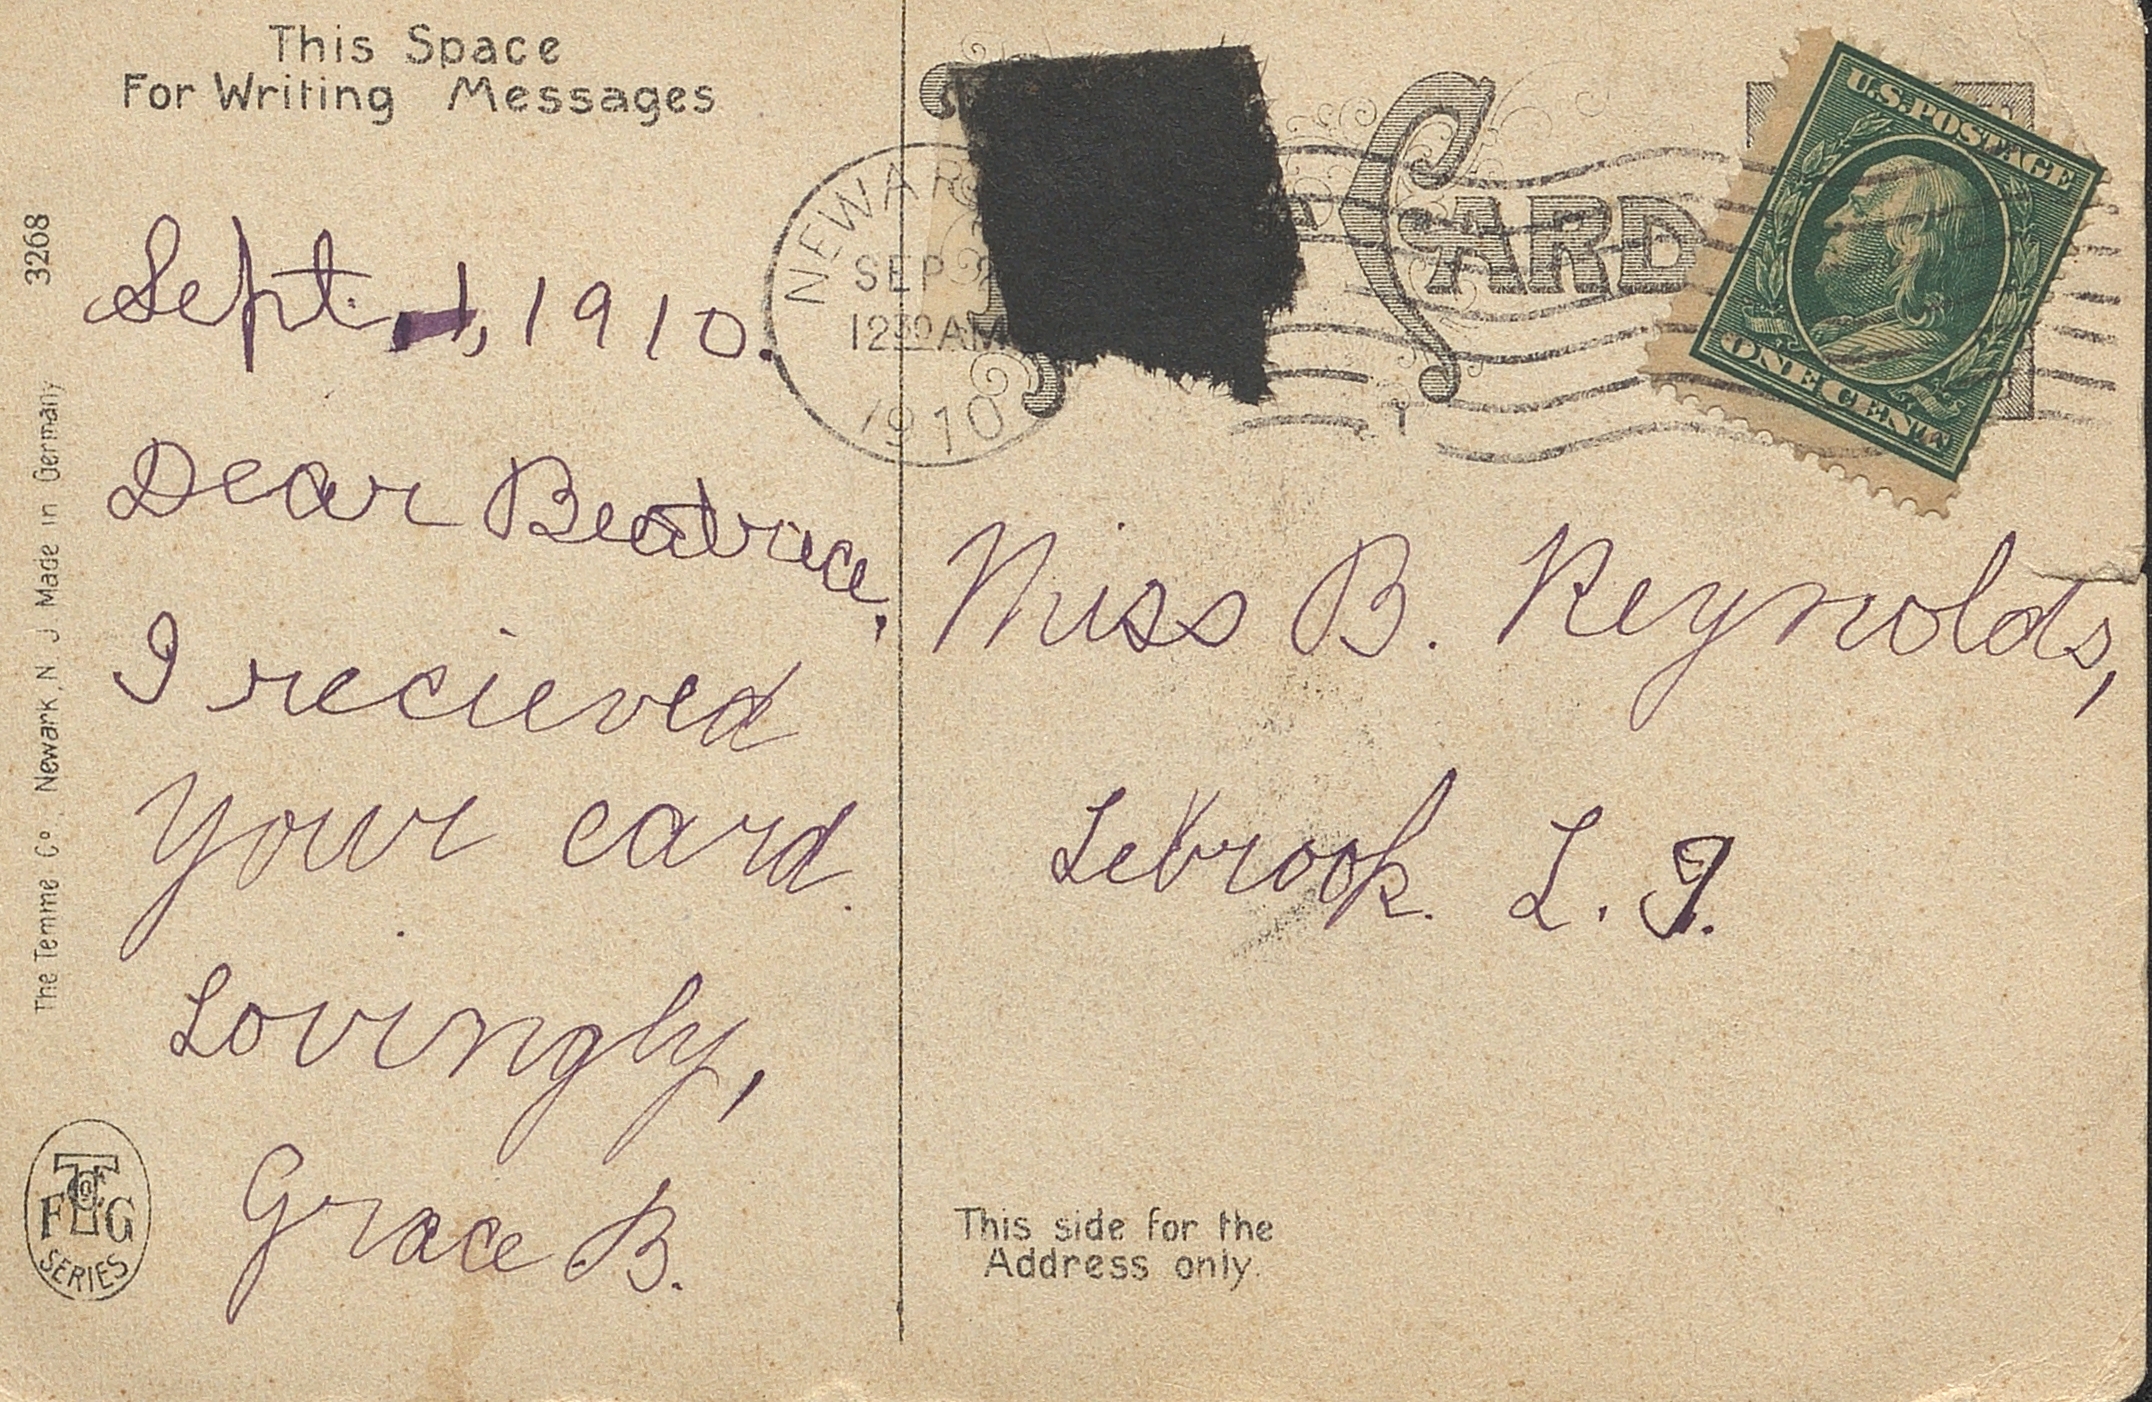 This Space
For Writing Messages
Sept. 1, 1910.
Dear Beatrice,
I recieved
your card.
Lovingly,
Grace B.
3268
The Temme Co., Newark, N. J. Made in Germany
F T Co G
SERIES
NEWAR
SEP
12 30 AM
1910
CARD
U.S. POSTAGE
ONE CENT
Miss B. Reynolds,
L. I.
This side for the
Address only.